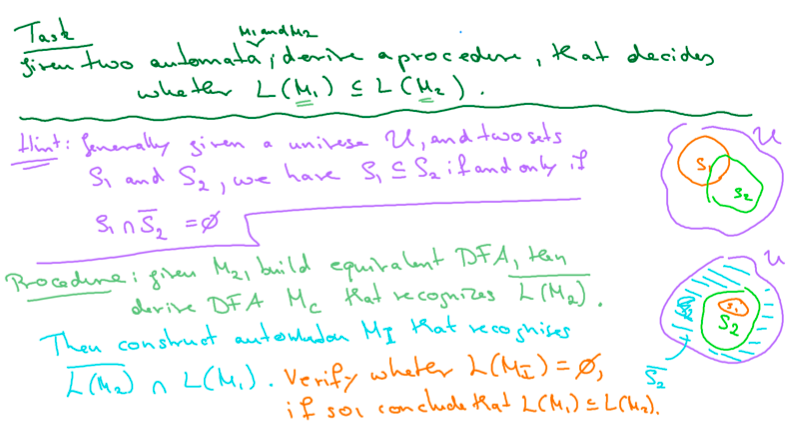 Task
M1 and M2
given two automata, derive a procedure, that decides
wheter L(M₁) ⊆ L(M₂).
Hint: Generally given a univese U, and two sets
S₁ and S₂, we have S₁ ⊆ S₂ if and only if
S₁ ∩ S̅₂ = ∅
Procedure: given M₂, build equivalent DFA, then
derive DFA Mc that recognizes \overline{L(M₂)}.
Then construct automaton M_I that recognises
\overline{L(M₂)} ∩ L(M₁). Verify wheter L(M_I) = ∅,
if so, conclude that L(M₁) ⊆ L(M₂).
U
S₁
S₂
U
S₁
S₂
S̅₂